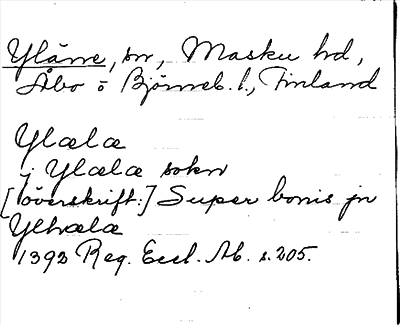 Yläne, sn, Masku hd,
Åbo o Björneb. l., Finland
Ylælæ
j Ylælæ sokn
[överskrift:] Super bonis jn
Ylhælæ
1392 Reg. Eccl. Ab. s. 205.